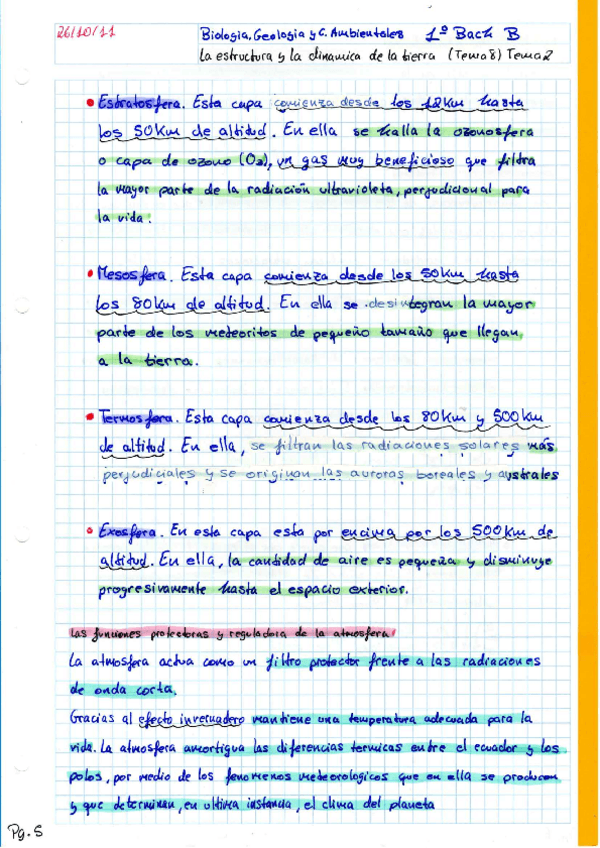 26/10/11
Biología, Geología y C. Ambientales 1º Bach B
La estructura y la dinamica de la tierra (Tema 8) Tema 2
• Estratosfera. Esta capa comienza desde los 12Km hasta
los 50Km de altitud. En ella se halla la ozonosfera
o capa de ozono (O₃), un gas muy beneficioso que filtra
la mayor parte de la radiación ultravioleta, perjudicional para
la vida.
• Mesosfera. Esta capa comienza desde los 50km hasta
los 80km de altitud. En ella se desintegran la mayor
parte de los meteoritos de pequeño tamaño que llegan
a la tierra.
• Termosfera. Esta capa comienza desde los 80Km y 500Km
de altitud. En ella, se filtran las radiaciones solares más
perjudiciales y se originan las auroras boreales y australes
• Exosfera. En esta capa esta por encima por los 500Km de
altitud. En ella, la cantidad de aire es pequeña y disminuye
progresivamente hasta el espacio exterior.
Las funciones protectoras y reguladora de la atmosfera
La atmosfera actua como un filtro protector frente a las radiaciones
de onda corta.
Gracias al efecto invernadero mantiene una temperatura adecuada para la
vida. La atmosfera amortigua las diferencias termicas entre el ecuador y los
polos, por medio de los fenomenos meteorologicos que en ella se producen
y que determinan, en ultima instancia, el clima del planeta
Pg. 5